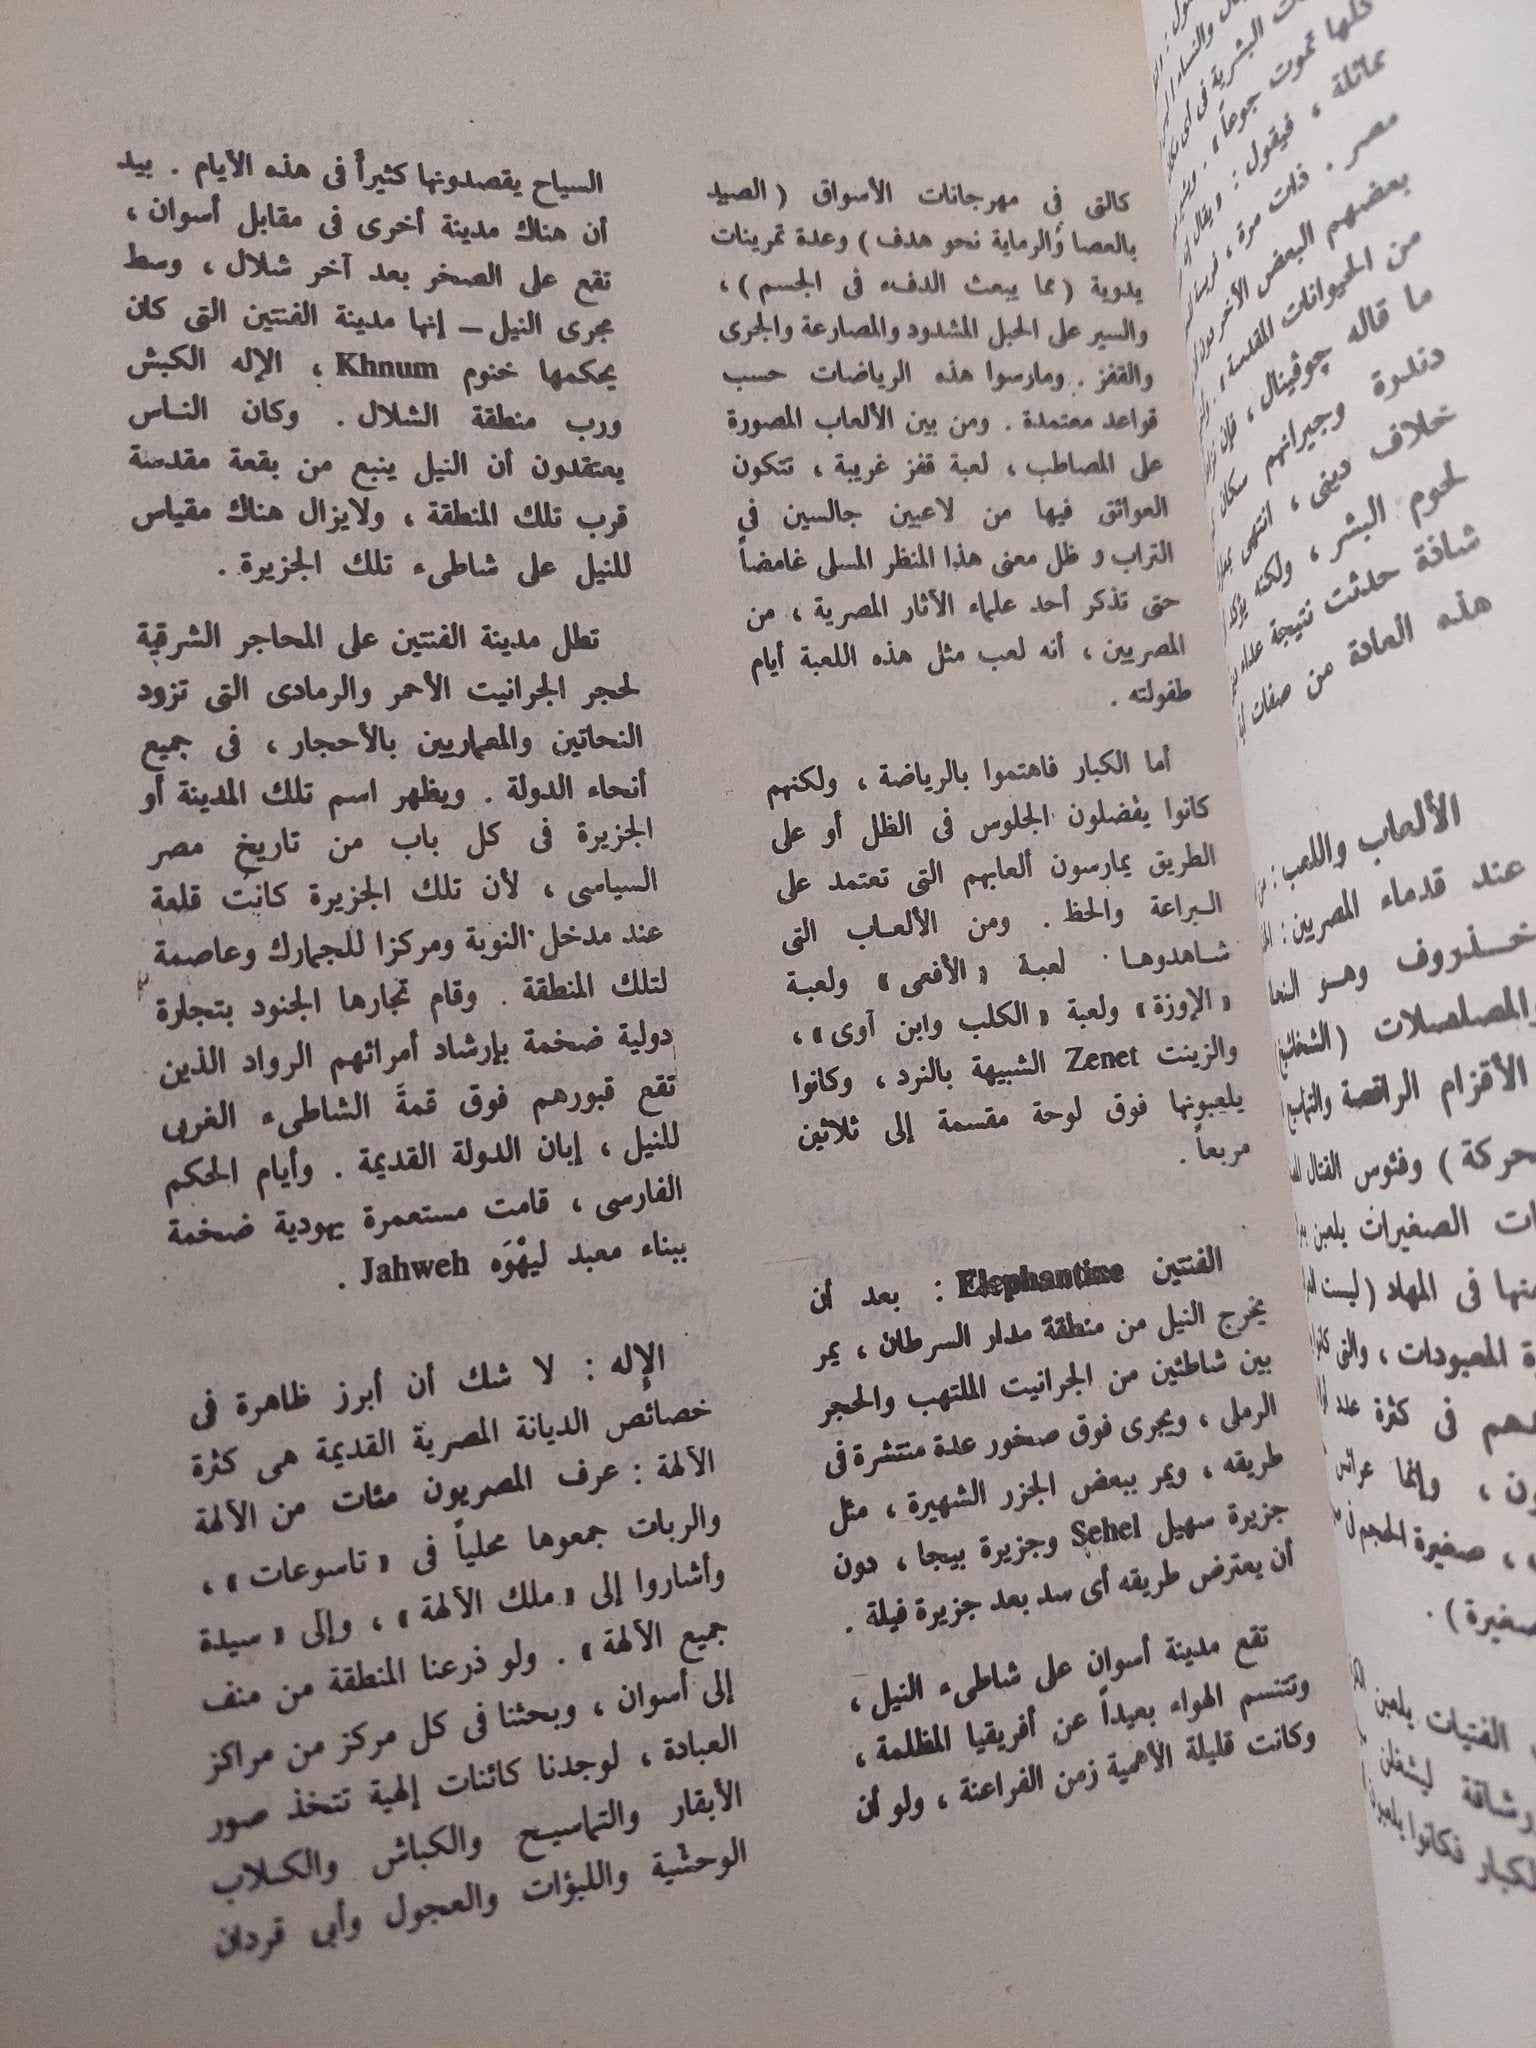 كالتى في مهرجانات الأسواق ( الصيد
بالعصا والرماية نحو هدف ) وعدة تمرينات
يدوية ( مما يبعث الدفء فى الجسم ) ،
والسير على الحبل المشدود والمصارعة والجرى
والقفز . ومارسوا هذه الرياضات حسب
قواعد معتمدة . ومن بين الألعاب المصورة
على المصاطب ، لعبة قفز غريبة ، تتكون
العوائق فيها من لاعبين جالسين في
التراب و ظل معنى هذا المنظر المسلى غامضاً
حتى تذكر أحد علماء الآثار المصرية ، من
المصريين ، أنه لعب مثل هذه اللعبة أيام
طفولته .
أما الكبار فاهتموا بالرياضة ، ولكنهم
كانوا يفضلون الجلوس فى الظل أو على
الطريق يمارسون ألعابهم التى تعتمد على
البراعة والحظ . ومن الألعاب التى
شاهدوها لعبة « الأفعى » ولعبة
« الإوزة » ولعبة « الكلب وابن آوى » ،
والزينت Zenet الشبيهة بالنرد ، وكانوا
يلعبونها فوق لوحة مقسمة إلى ثلاثين
مربعاً .
الفنتين Elephantine : بعد أن
يخرج النيل من منطقة مدار السرطان ، يمر
بين شاطئين من الجرانيت الملتهب والحجر
الرملى ، ويجرى فوق صخور عدة منتشرة فى
طريقه ، ويمر ببعض الجزر الشهيرة ، مثل
جزيرة سهيل Sehel وجزيرة بيجا ، دون
أن يعترض طريقه أى سد بعد جزيرة فيلة .
تقع مدينة أسوان على شاطىء النيل ،
وتتنسم الهواء بعيداً عن أفريقيا المظلمة ،
وكانت قليلة الأهمية زمن الفراعنة ، ولو أن
السياح يقصدونها كثيراً فى هذه الأيام . بيد
أن هناك مدينة أخرى فى مقابل أسوان ،
تقع على الصخر بعد آخر شلال ، وسط
مجرى النيل ــ إنها مدينة الفنتين التى كان
يحكمها خنوم Khnum ، الإله الكبش
ورب منطقة الشلال . وكان الناس
يعتقدون أن النيل ينبع من بقعة مقدسة
قرب تلك المنطقة ، ولايزال هناك مقياس
للنيل على شاطىء تلك الجزيرة .
تطل مدينة الفنتين على المحاجر الشرقية
لحجر الجرانيت الأحمر والرمادى التى تزود
النحاتين والمعماريين بالأحجار ، فى جميع
أنحاء الدولة . ويظهر اسم تلك المدينة أو
الجزيرة فى كل باب من تاريخ مصر
السياسى ، لأن تلك الجزيرة كانت قلعة
عند مدخل النوبة ومركزا للجمارك وعاصمة
لتلك المنطقة . وقام تجارها الجنود بتجارة
دولية ضخمة بإرشاد أمرائهم الرواد الذين
تقع قبورهم فوق قمة الشاطىء الغربى
للنيل ، إبان الدولة القديمة . وأيام الحكم
الفارسى ، قامت مستعمرة يهودية ضخمة
ببناء معبد ليهْوَه Jahweh .
الإله : لا شك أن أبرز ظاهرة فى
خصائص الديانة المصرية القديمة هى كثرة
الآلهة : عرف المصريون مئات من الآلهة
والربات جمعوها محلياً فى « تاسوعات » ،
وأشاروا إلى « ملك الآلهة » ، وإلى « سيدة
جميع الآلهة » . ولو ذرعنا المنطقة من منف
إلى أسوان ، وبحثنا فى كل مركز من مراكز
العبادة ، لوجدنا كائنات إلهية تتخذ صور
الأبقار والتماسيح والكباش والكلاب
الوحشية واللبؤات والعجول وأبى قردان
كلها تموت جوعاً
مماثلة ، فيقول : ويقال
مصر . ذات مرة ،
بعضهم البعض الآخر
من الحيوانات المقدسة
ما قاله چوفينال ، فإن
دندرة وجيرانهم سكان
خلاف دينى ، انتهى
لحوم البشر ، ولكنه يؤكد
شافة حدثت نتيجة عداء
هذه العادة من صفات
الألعاب واللعب :
عند قدماء المصريين :
خذروف وهو
والمصلصلات ( الشخاشيخ
الأقزام الراقصة والتماسيح
) وفئوس القتال
الصغيرات يلعبن
فى المهاد ( ليست
المعبودات ، والتى كانوا
فى كثرة عدد
، وإنما عرائس
، صغيرة الحجم فى
صغيرة ) .
الفتيات يلعبن
ليشغلن
فكانوا يلعبون